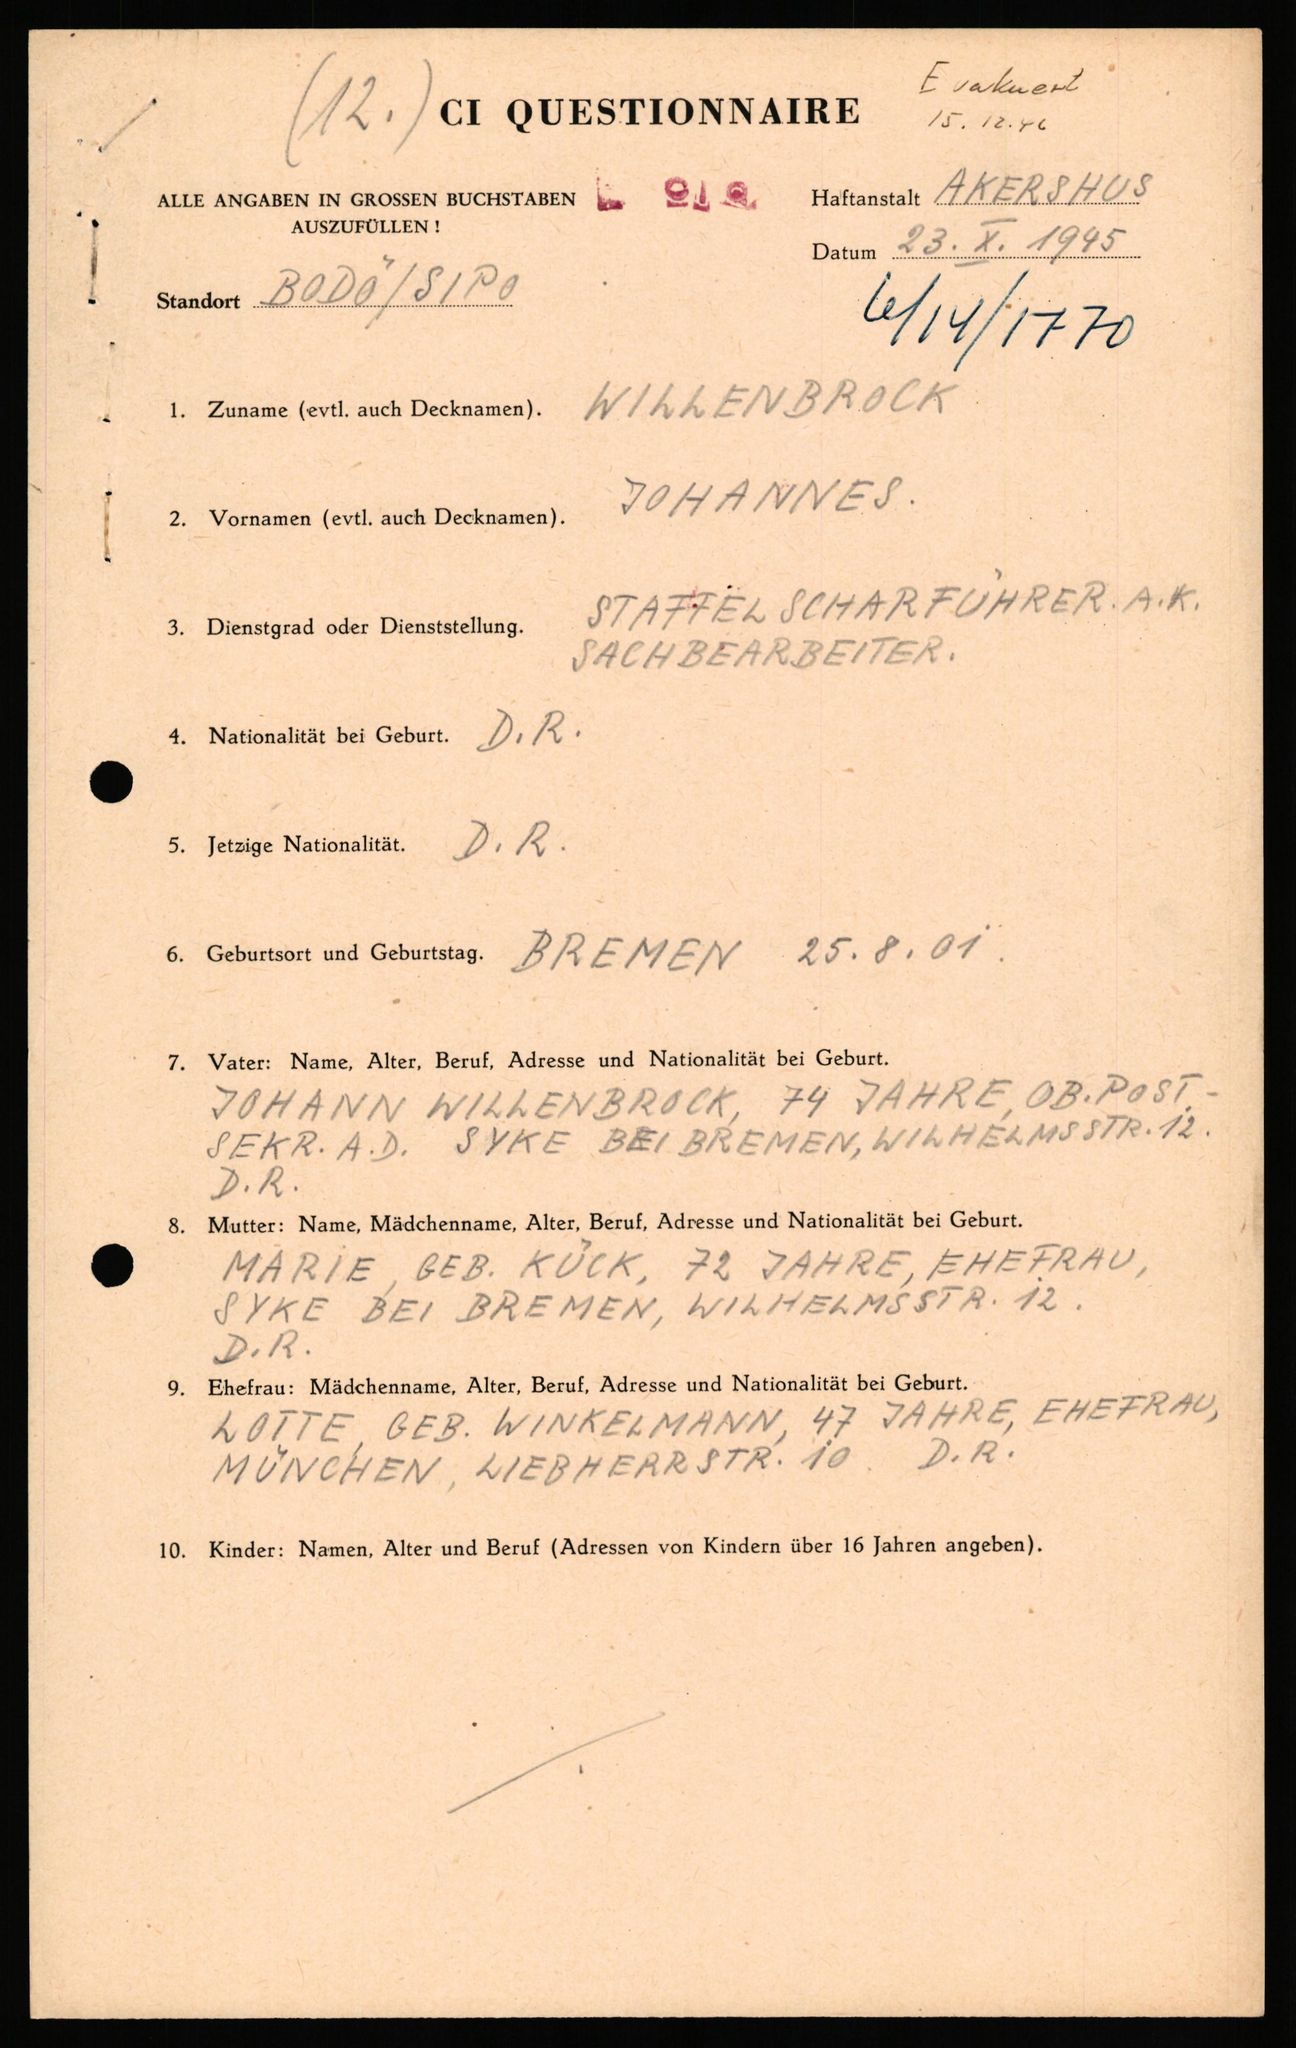 (12.) CI QUESTIONNAIRE
Evakuert
15.12.46
ALLE ANGABEN IN GROSSEN BUCHSTABEN
AUSZUFÜLLEN!
Haftanstalt AKERSHUS
Datum 23. X. 1945
Standort BODÖ/SIPO
/14/1770
1. Zuname (evtl. auch Decknamen). WILLENBROCK
2. Vornamen (evtl. auch Decknamen). JOHANNES.
3. Dienstgrad oder Dienststellung. STAFFELSCHARFÜHRER. A.K.
SACHBEARBEITER.
4. Nationalität bei Geburt. D.R.
5. Jetzige Nationalität. D.R.
6. Geburtsort und Geburtstag. BREMEN 25.8.01.
7. Vater: Name, Alter, Beruf, Adresse und Nationalität bei Geburt.
JOHANN WILLENBROCK, 74 JAHRE, OB.POST.-
SEKR. A.D. SYKE BEI BREMEN, WILHELMSSTR. 12.
D.R.
8. Mutter: Name, Mädchenname, Alter, Beruf, Adresse und Nationalität bei Geburt.
MARIE, GEB. KÜCK, 72 JAHRE, EHEFRAU,
SYKE BEI BREMEN, WILHELMSSTR. 12.
D.R.
9. Ehefrau: Mädchenname, Alter, Beruf, Adresse und Nationalität bei Geburt.
LOTTE, GEB. WINKELMANN, 47 JAHRE, EHEFRAU,
MÜNCHEN, LIEBHERRSTR. 10. D.R.
10. Kinder: Namen, Alter und Beruf (Adressen von Kindern über 16 Jahren angeben).